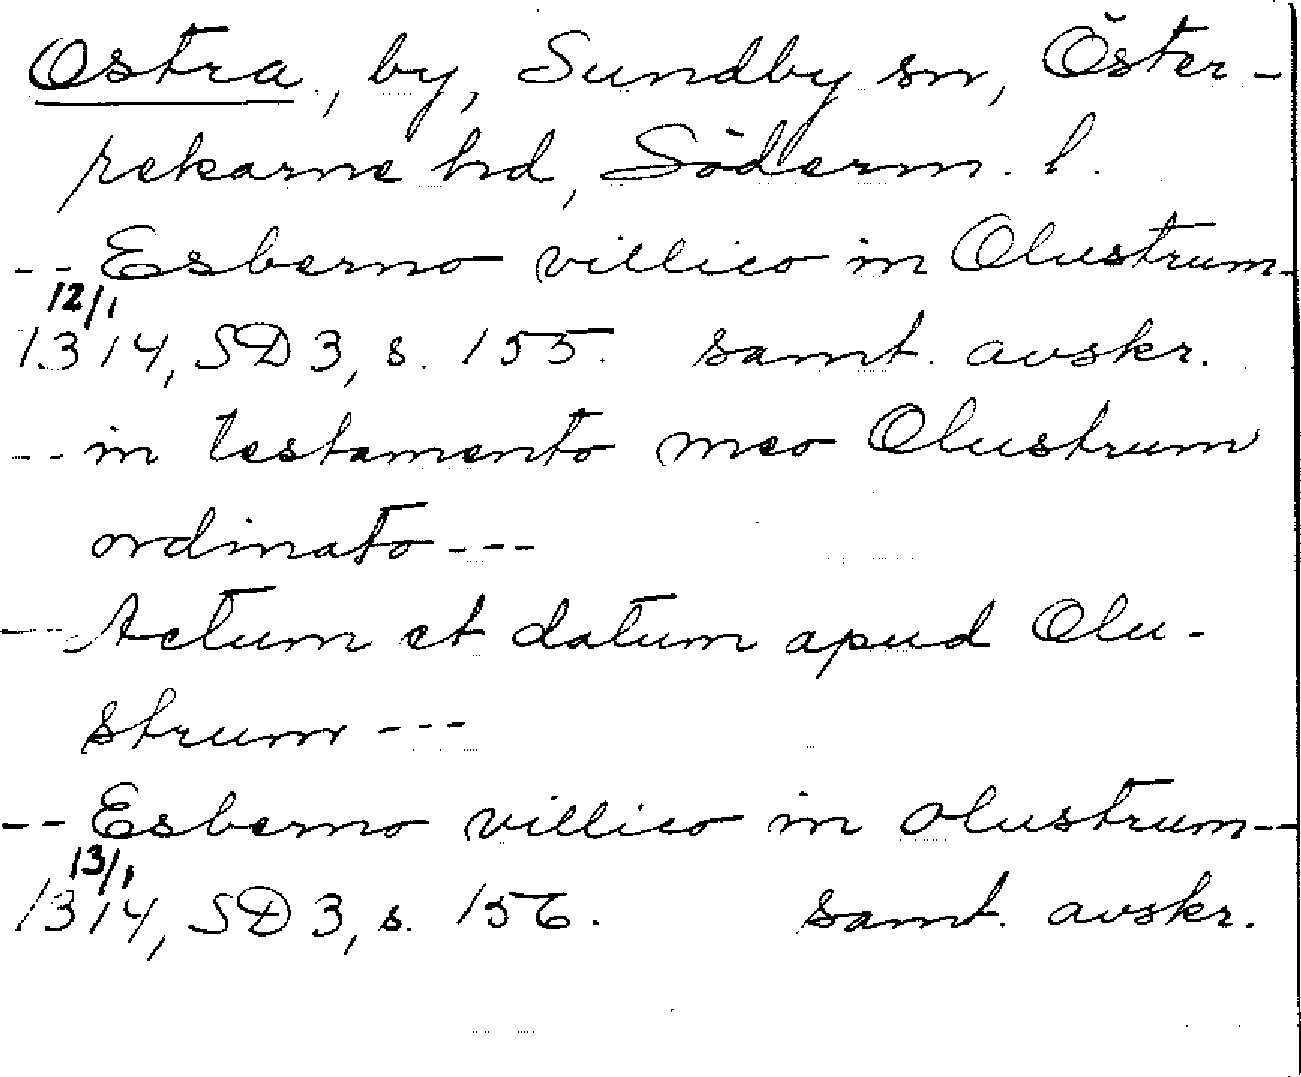 Ostra, by, Sundby sn, Öster-
rekarne hd, Söderm. l.
-- Esberno villico in Olustrum-
12/1
1314, SD 3, s. 155. samt. avskr.
-- in testamento meo Olustrum
ordinato ---
-- Actum et datum apud Olu-
strum ---
-- Esberno villico in olustrum--
13/1
1314, SD 3, s. 156. samt. avskr.